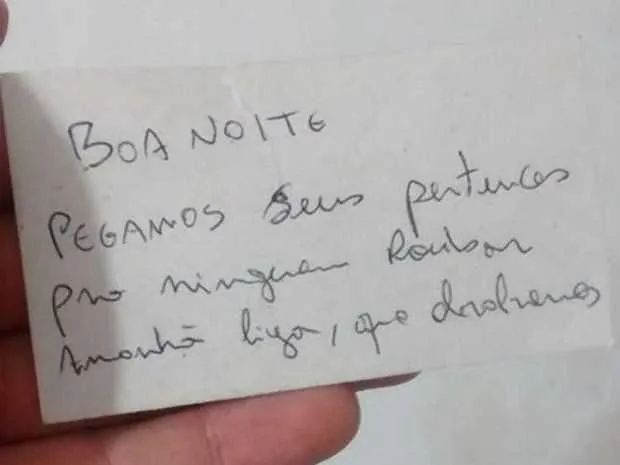 BOA NOITE
PEGAMOS seus pertences
pro ninguem Roubar
Amanhã liga, que devolvemos